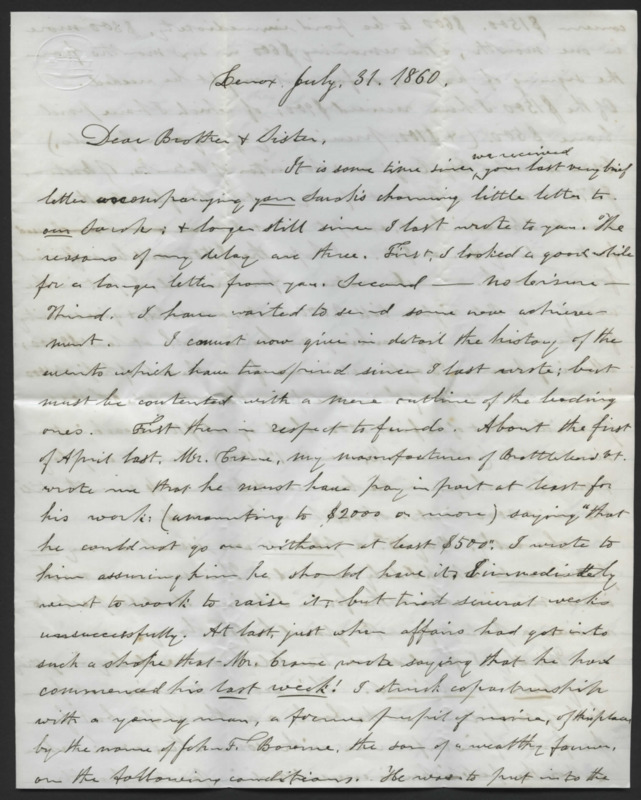 Lenox July. 31. 1860.
Dear Brother & Sister,
It is some time since we received your last very brief
letter accompanying your Sarah's charming little letter to
our Sarah; & longer still since I last wrote to you. The
reasons of my delay are three. First, I looked a good while
for a longer letter from you. Second — no leisure —
Third. I have waited to send some new achieve-
ment. I cannot now give in detail the history of the
events which have transpired since I last wrote; but
must be contented with a mere outline of the leading
ones. First then in respect to funds. About the first
of April last, Mr. Crane, my manufacturer of Brattleboro Vt.
wrote me that he must have pay in part at least for
his work: (amounting to $2000 or more) saying "that
he could not go on without at least $500". I wrote to
him assuring him he should have it, & immediately
went to work to raise it, but tried several weeks
unsuccessfully. At last, just when affairs had got into
such a shape that Mr. Crane wrote saying that he had
commenced his last week! I struck copartnership
with a young man, a former pupil of mine, of this place
by the name of John F. Bourne, the son of a wealthy farmer,
on the following conditions. He was to put into the